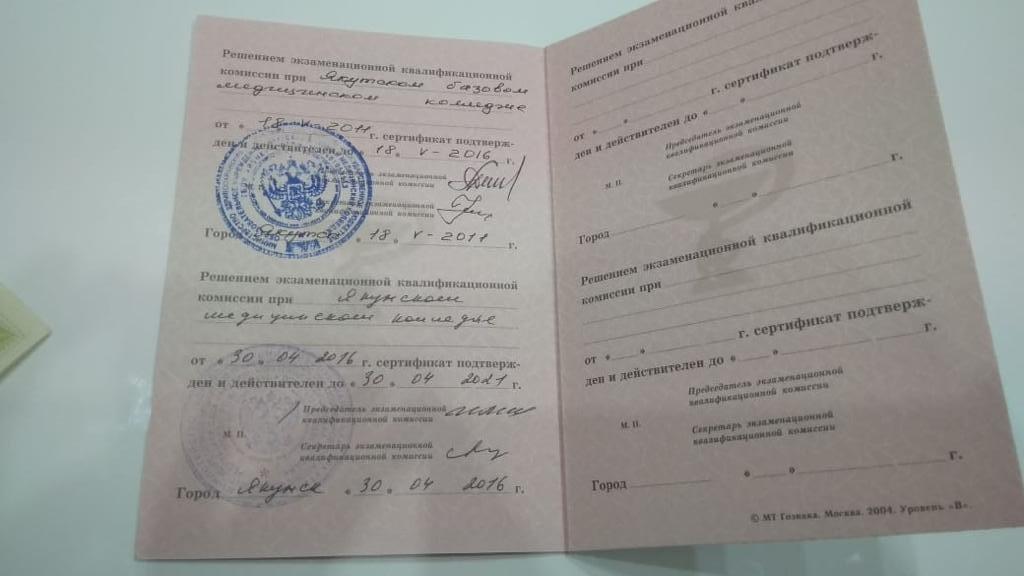 Решением экзаменационной квалификационной
комиссии при Якутском базовом
медицинском колледже
от «18» V-2011 г. сертификат подтверж-
ден и действителен до «18» V-2016 г.
экзаменационной
комиссии
экзаменационной
комиссии
Город Якутск «18» V-2011 г.
Решением экзаменационной квалификационной
комиссии при Якутском
медицинском колледже
от «30» 04 2016 г. сертификат подтверж-
ден и действителен до «30» 04 2021 г.
Председатель экзаменационной
квалификационной комиссии
М. П.
Секретарь экзаменационной
квалификационной комиссии
Город Якутск «30» 04 2016 г.
Решением экзаменационной
комиссии при
от « » г. сертификат подтверж-
ден и действителен до « » г.
Председатель экзаменационной
квалификационной комиссии
М. П.
Секретарь экзаменационной
квалификационной комиссии
Город « » г.
Решением экзаменационной квалификационной
комиссии при
от « » г. сертификат подтверж-
ден и действителен до « » г.
Председатель экзаменационной
квалификационной комиссии
М. П.
Секретарь экзаменационной
квалификационной комиссии
Город « » г.
© МТ Гознака. Москва. 2004. Уровень «В».